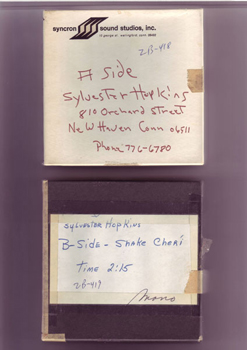 syncron sound studios, inc.
2B-418
A Side
Sylvester Hopkins
810 Orchard Street
New Haven Conn 06511
Phone: 776-6780
Sylvester Hopkins
B-Side - Shake Cheri
Time 2:15
2B-419
Mono